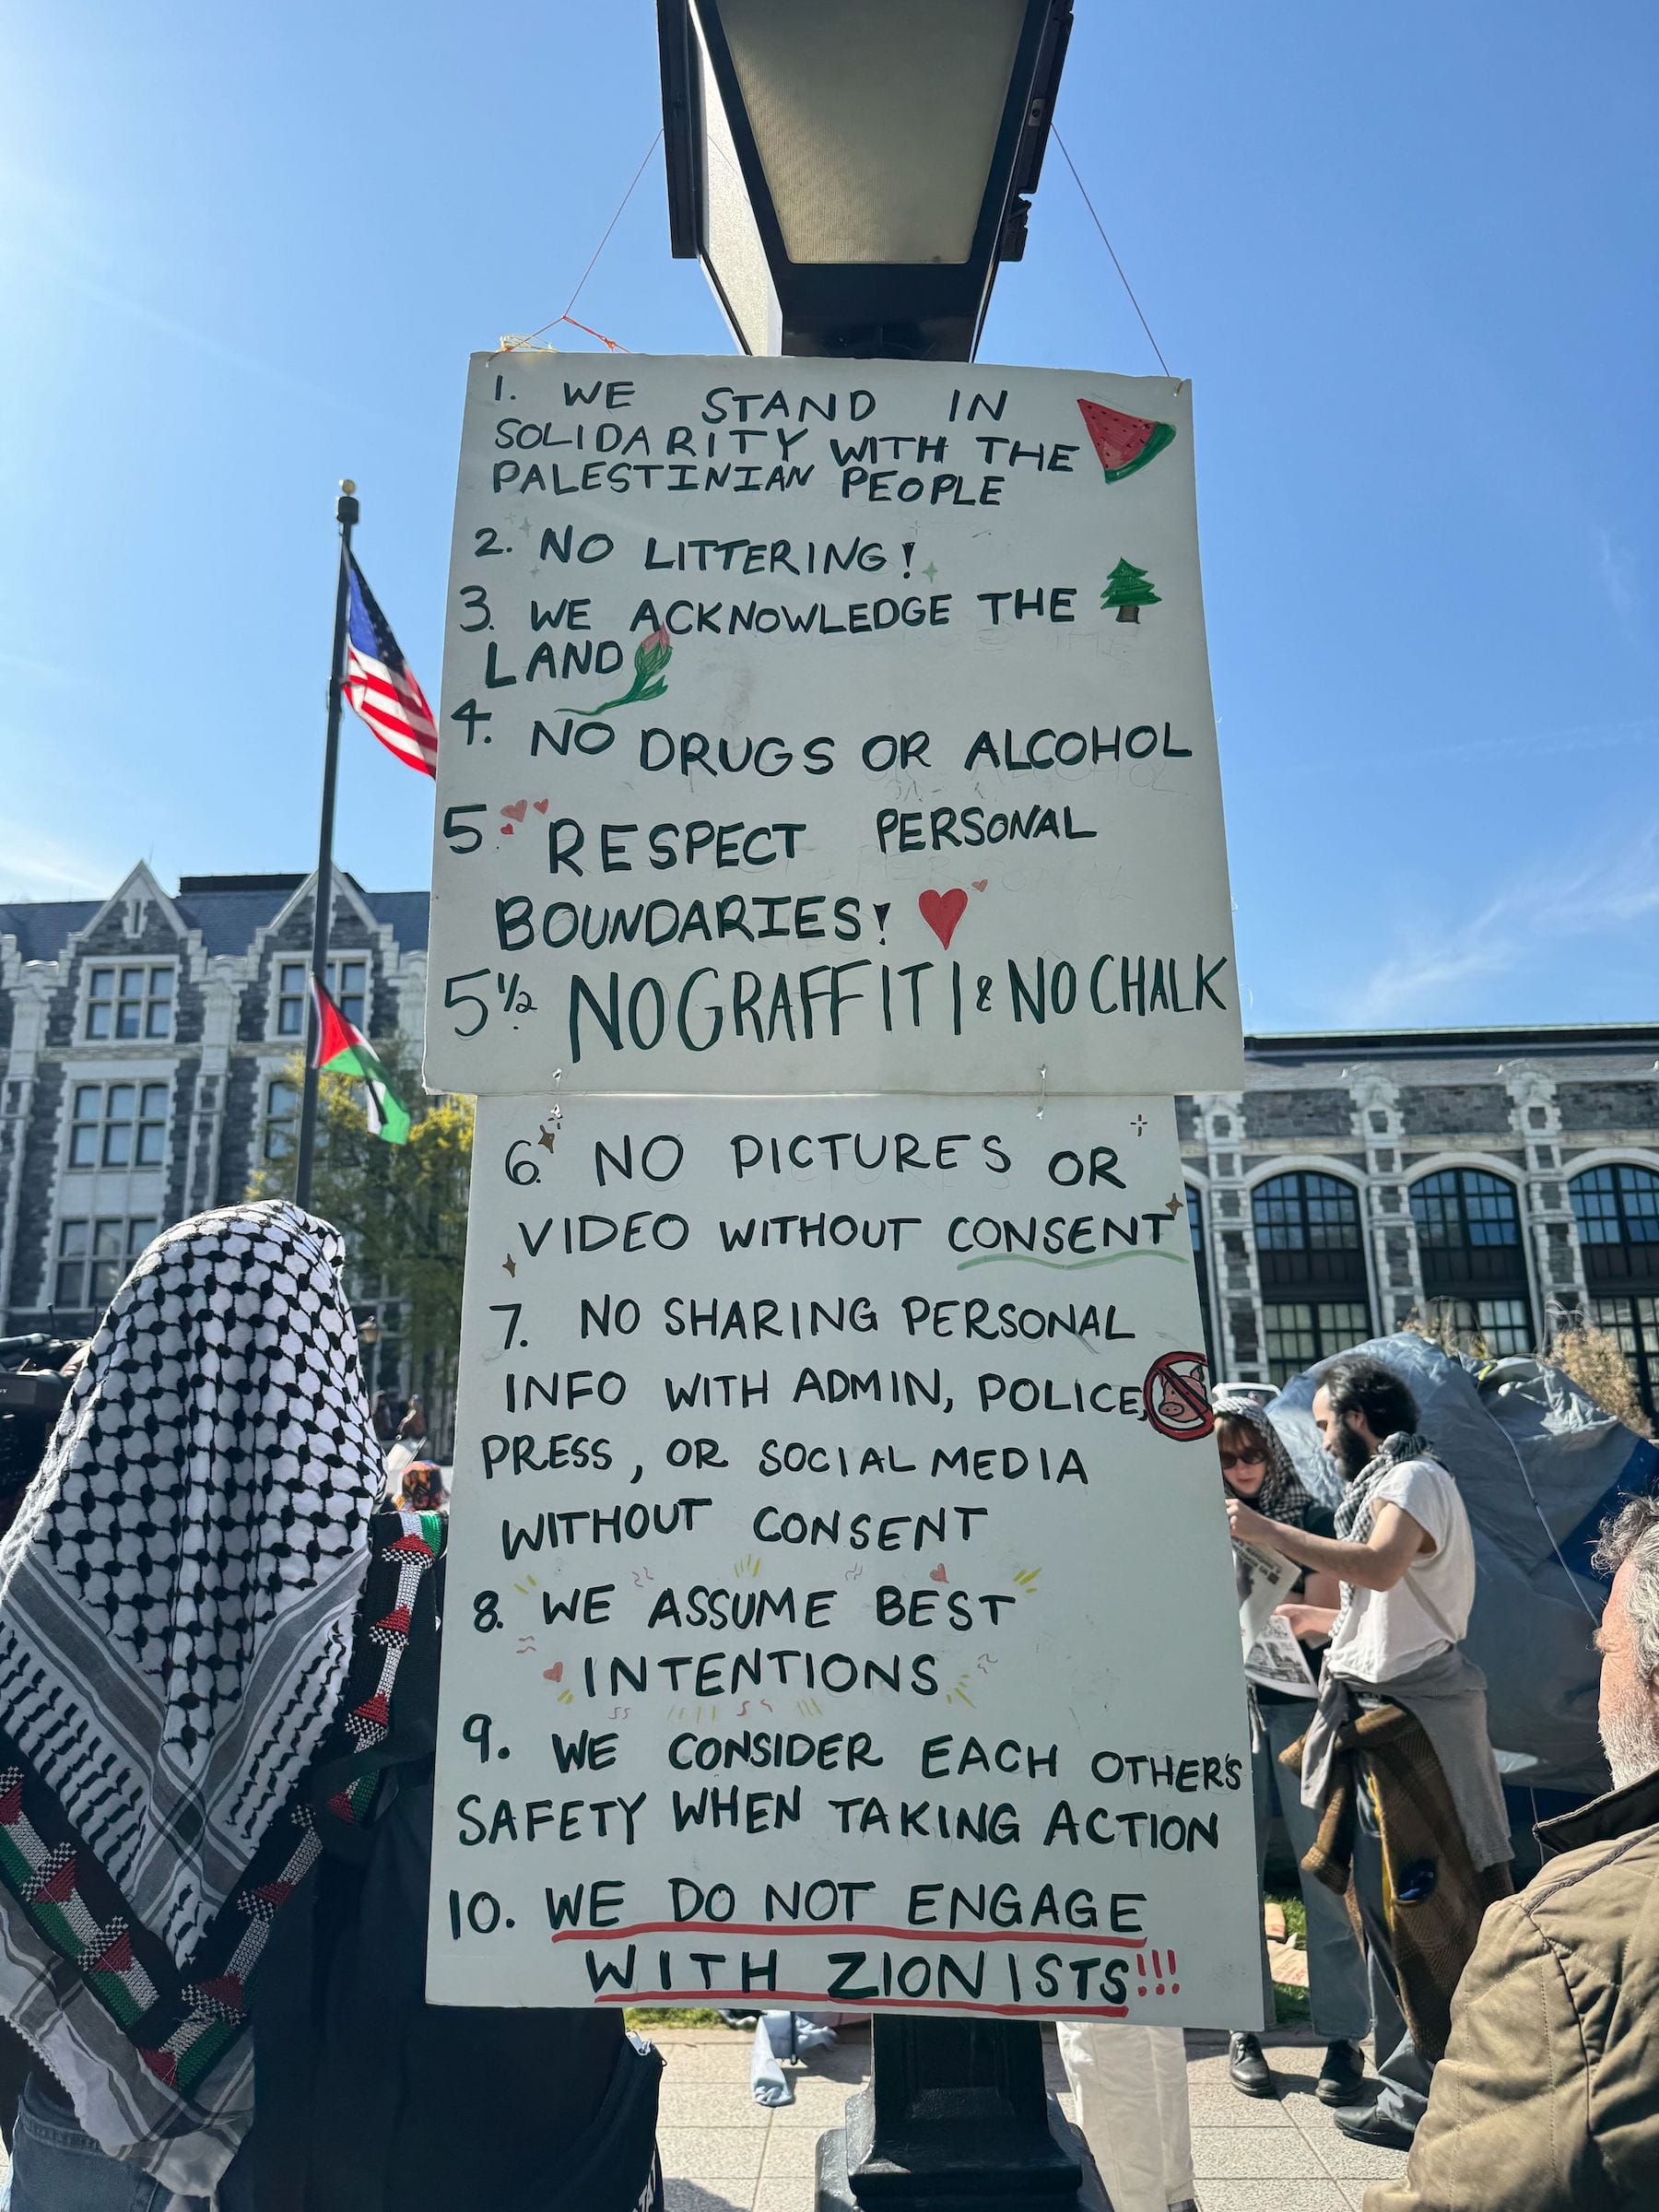 1. WE STAND IN
SOLIDARITY WITH THE
PALESTINIAN PEOPLE
2. NO LITTERING!
3. WE ACKNOWLEDGE THE
LAND
4. NO DRUGS OR ALCOHOL
5. RESPECT PERSONAL
BOUNDARIES!
5 1/2. NO GRAFFITI & NO CHALK
6. NO PICTURES OR
VIDEO WITHOUT CONSENT
7. NO SHARING PERSONAL
INFO WITH ADMIN, POLICE,
PRESS, OR SOCIAL MEDIA
WITHOUT CONSENT
8. WE ASSUME BEST
INTENTIONS
9. WE CONSIDER EACH OTHER'S
SAFETY WHEN TAKING ACTION
10. WE DO NOT ENGAGE
WITH ZIONISTS!!!